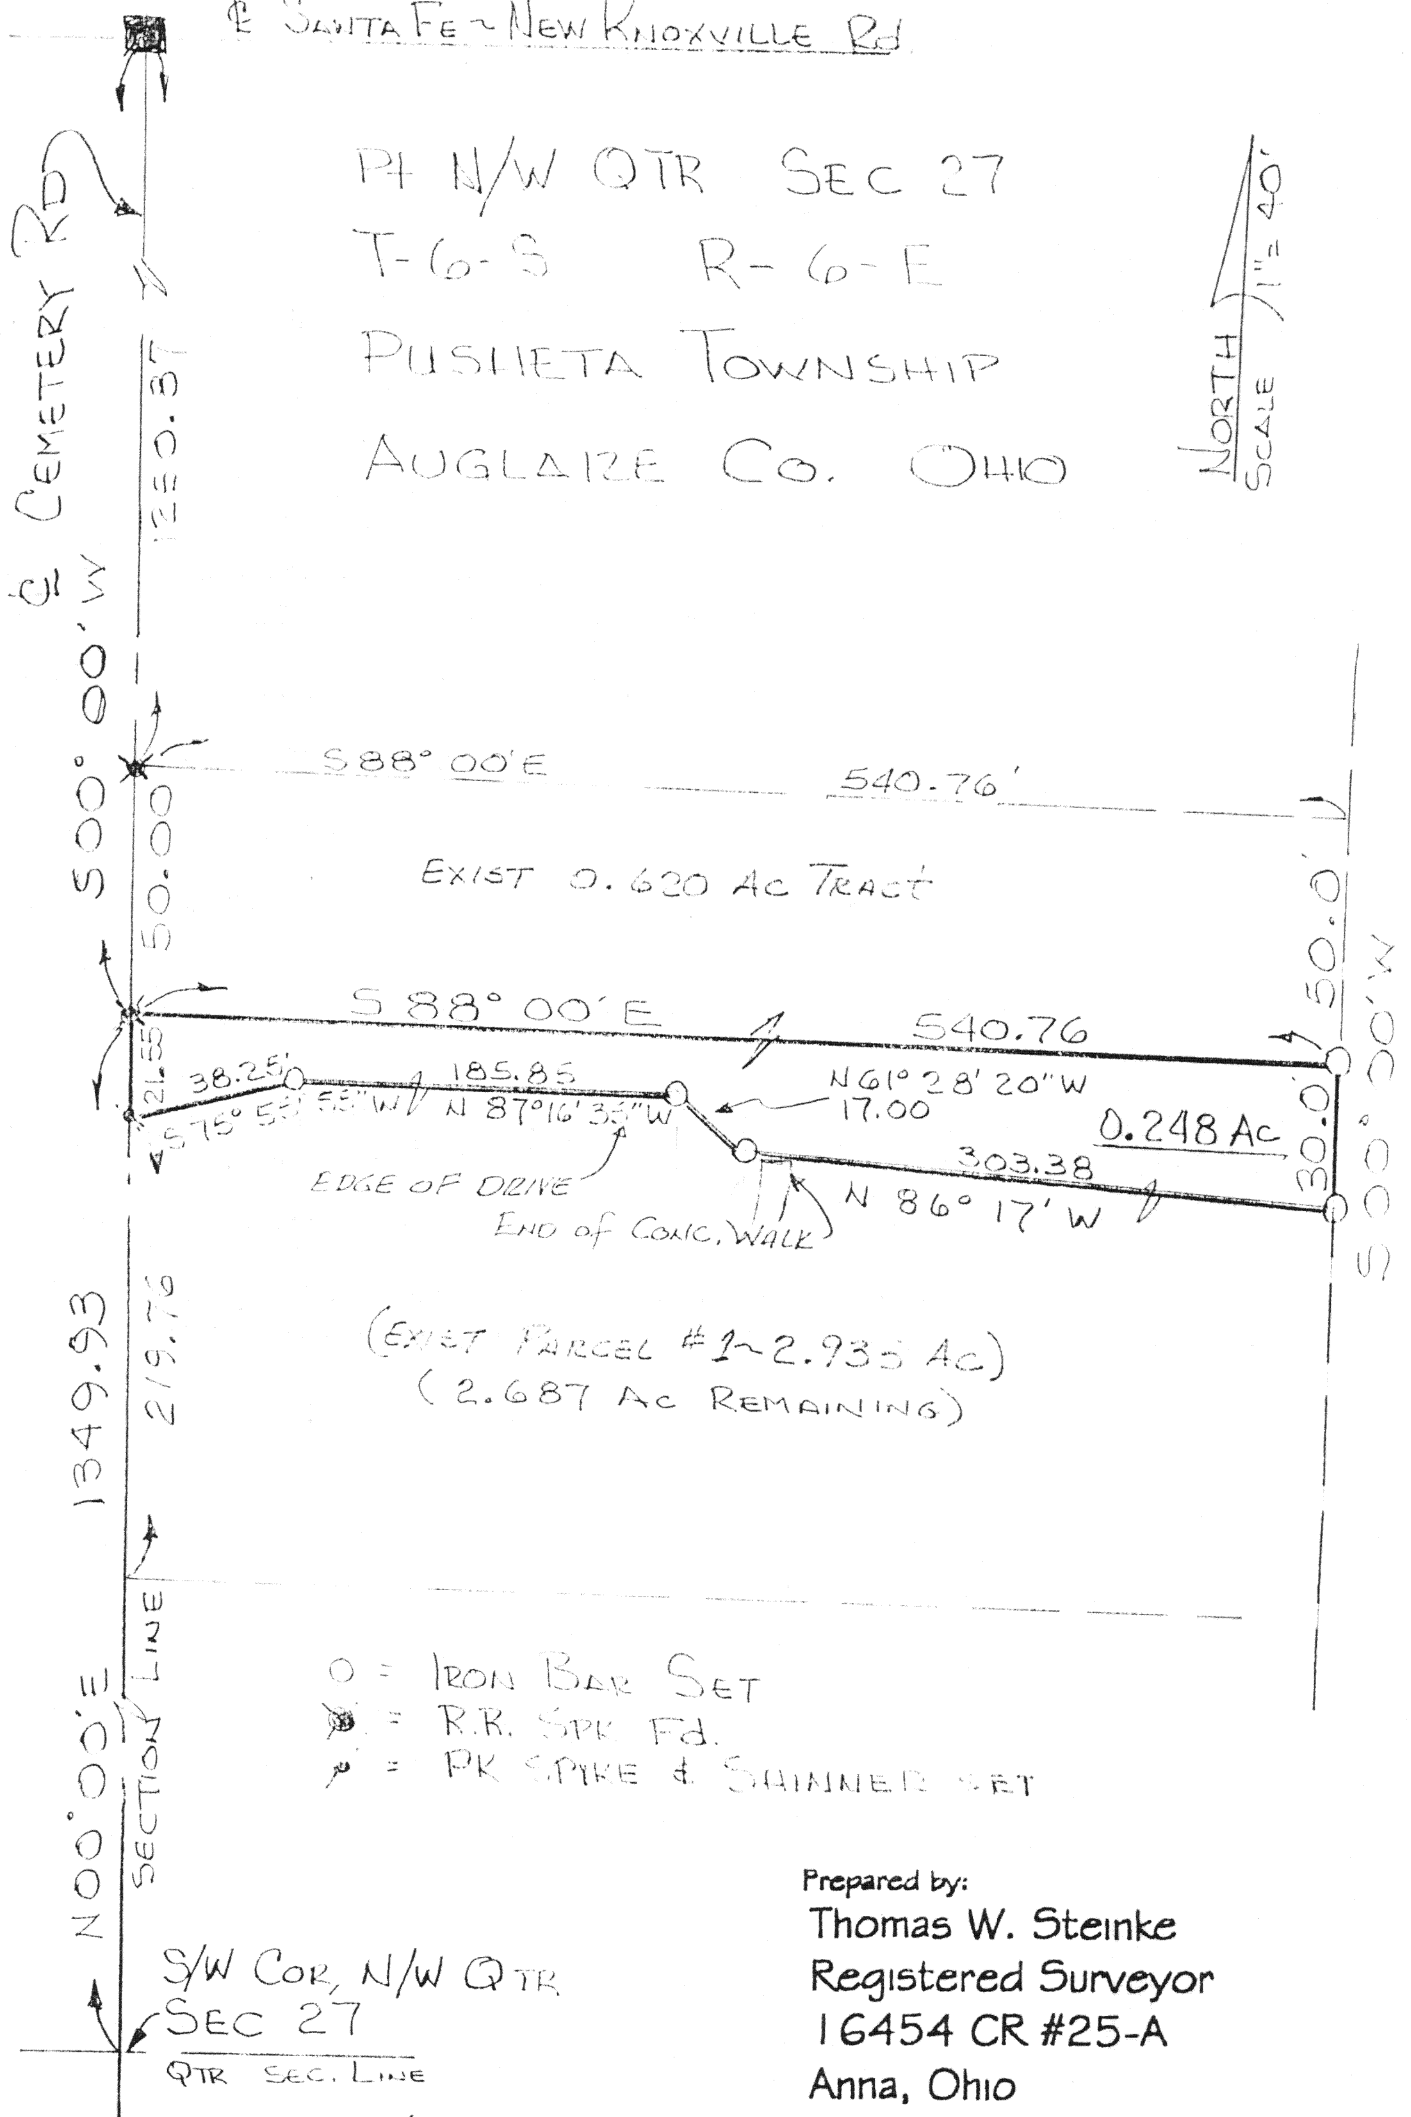 ℄ SANTA FE ~ NEW KNOXVILLE Rd
Pt N/W QTR SEC 27
T-6-S R-6-E
PUSHETA TOWNSHIP
AUGLAIZE Co. OHIO
NORTH
SCALE 1"= 40'
℄ CEMETERY RD
S00° 00' W
50.00
S 88° 00' E
540.76'
EXIST 0.620 AC TRACT
50.0'
S 00° 00' W
S 88° 00' E
540.76
21.55
38.25'
S 75° 55' 55" W
185.85
N 87° 16' 35" W
N 61° 28' 20" W
17.00
0.248 AC
30.0'
303.38
N 86° 17' W
EDGE OF DRIVE
END of CONC. WALK
1349.93
219.76
(EXIST PARCEL #1 ~ 2.935 AC)
(2.687 AC REMAINING)
N00° 00' E
SECTION LINE
O = IRON BAR SET
= R.R. SPK Fd.
= PK SPIKE & SHINNER SET
S/W COR, N/W QTR
SEC 27
QTR SEC. LINE
Prepared by:
Thomas W. Steinke
Registered Surveyor
16454 CR #25-A
Anna, Ohio